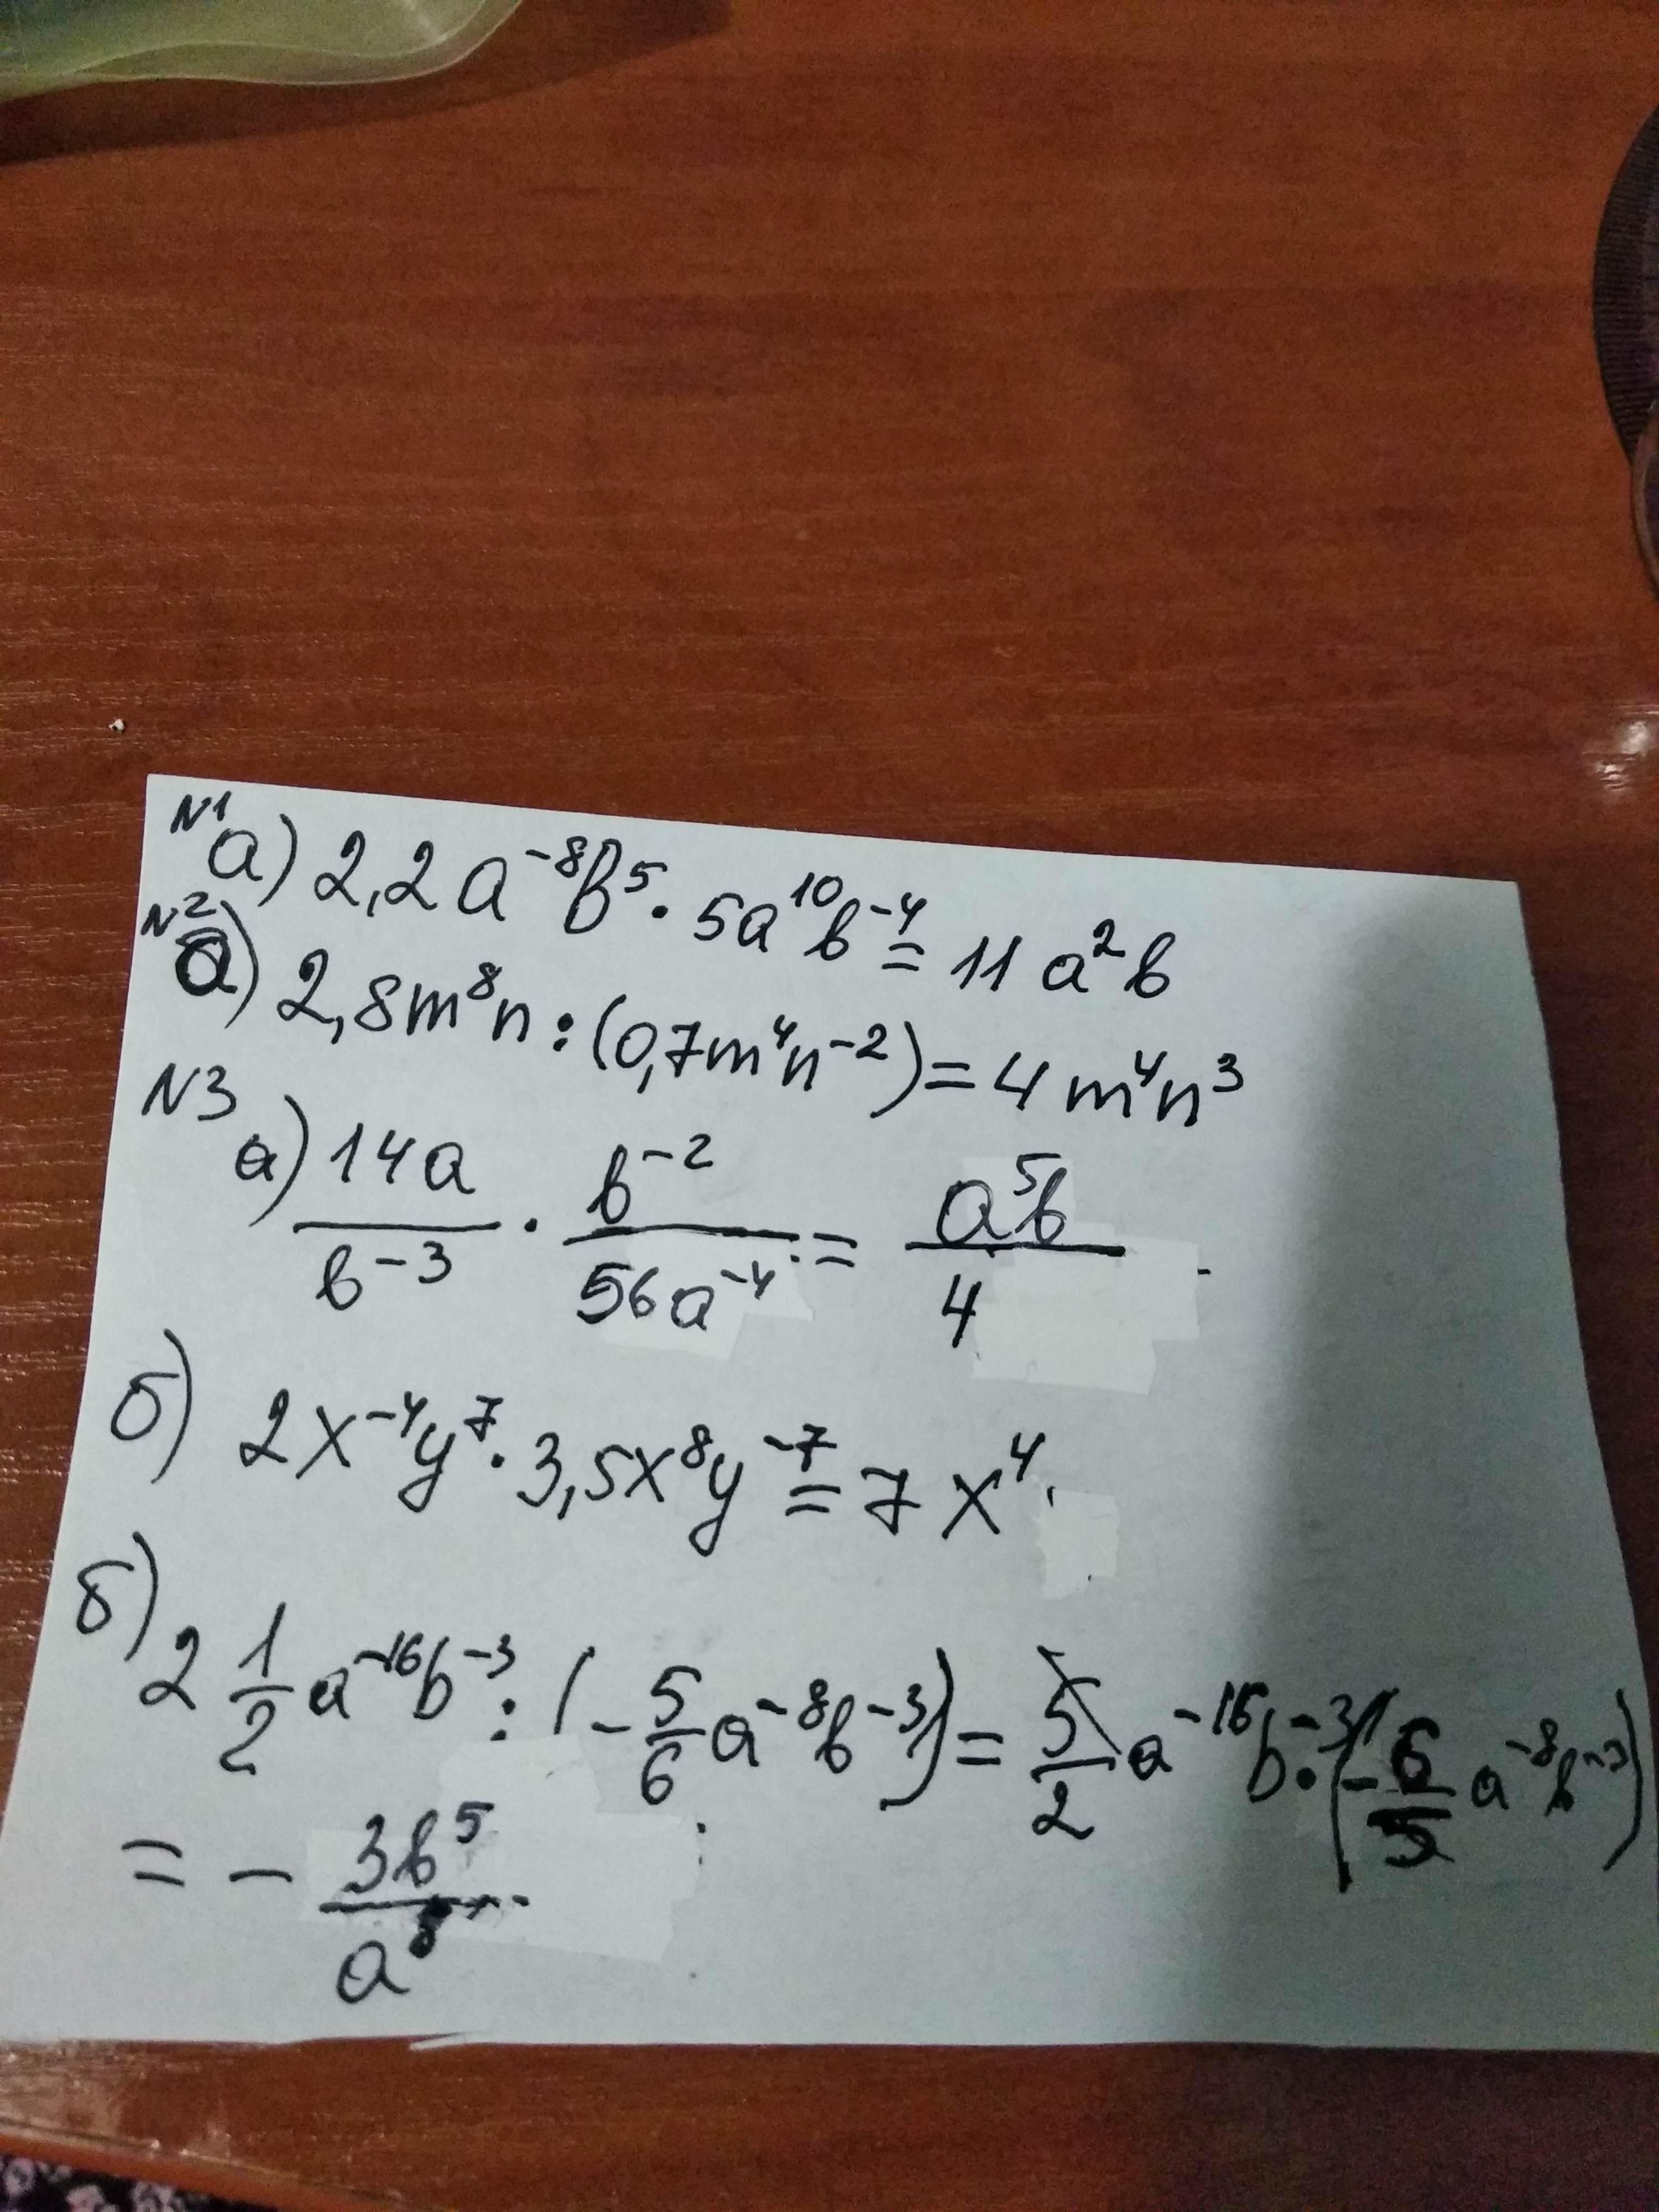 N1
а) 2,2a⁻⁸b⁵ · 5a¹⁰b⁻⁴ = 11a²b
N2
а) 2,8m⁸n : (0,7m⁴n⁻²) = 4m⁴n³
N3
а) 14a/b⁻³ · b⁻²/56a⁻⁴ = a⁵b/4
б) 2x⁻⁴y⁷ · 3,5x⁸y⁻⁷ = 7x⁴
б) 2 1/2 a⁻¹⁶b⁻³ : (-5/6 a⁻⁸b⁻³) = 5/2 a⁻¹⁶b⁻³ · (-6/5 a⁻⁸b⁻³)
= - 3b⁵/a⁸